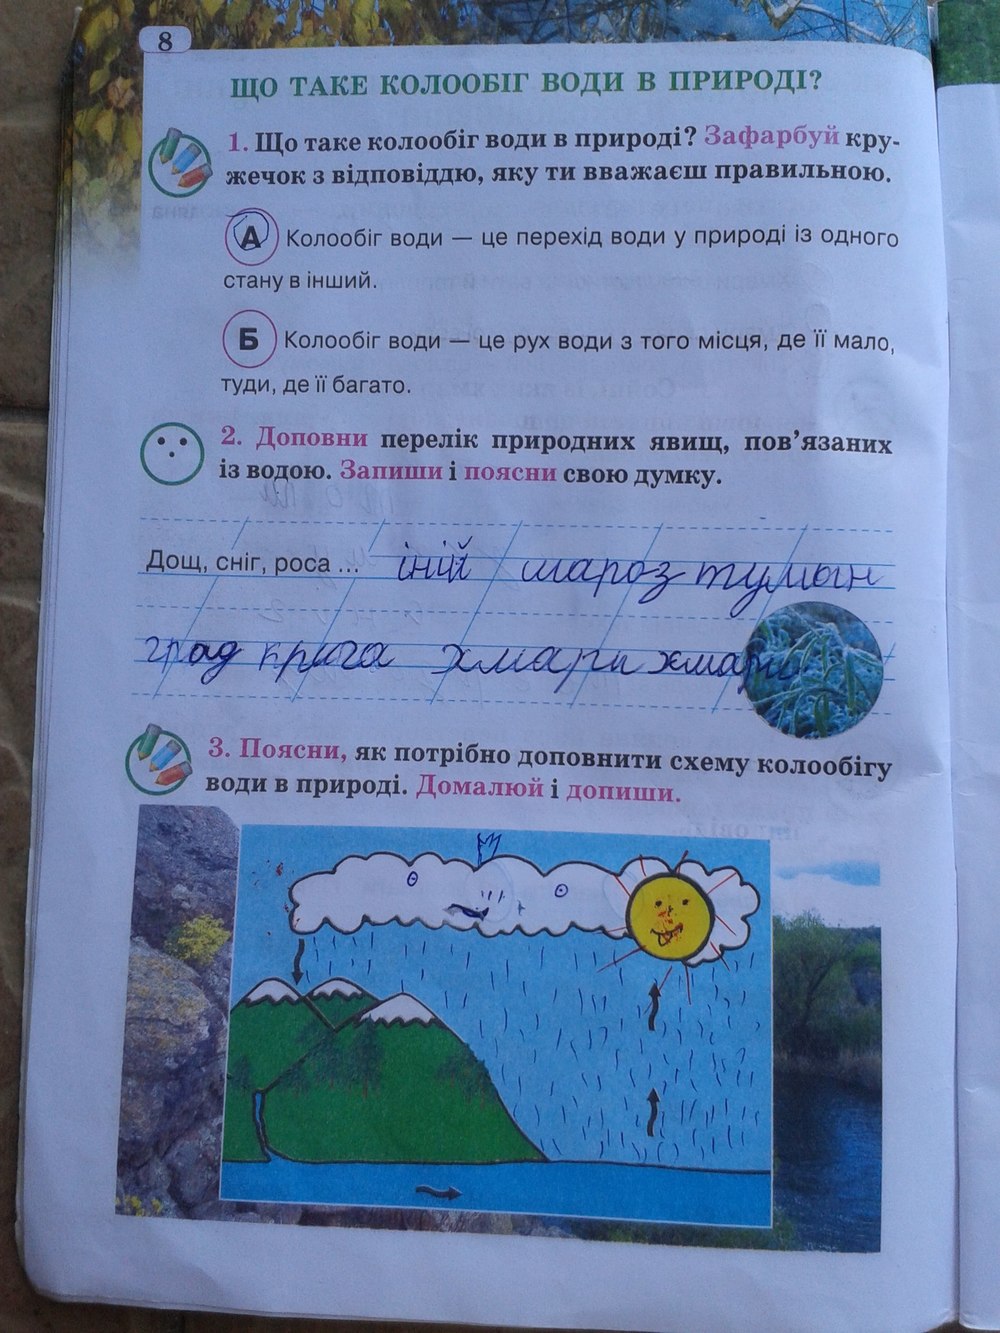 8
ЩО ТАКЕ КОЛООБІГ ВОДИ В ПРИРОДІ?
1. Що таке колообіг води в природі? Зафарбуй кру-
жечок з відповіддю, яку ти вважаєш правильною.
А Колообіг води — це перехід води у природі із одного
стану в інший.
Б Колообіг води — це рух води з того місця, де її мало,
туди, де її багато.
2. Доповни перелік природних явищ, пов’язаних
із водою. Запиши і поясни свою думку.
Дощ, сніг, роса ... іній мароз туман
град крига хмари хмари
3. Поясни, як потрібно доповнити схему колообігу
води в природі. Домалюй і допиши.